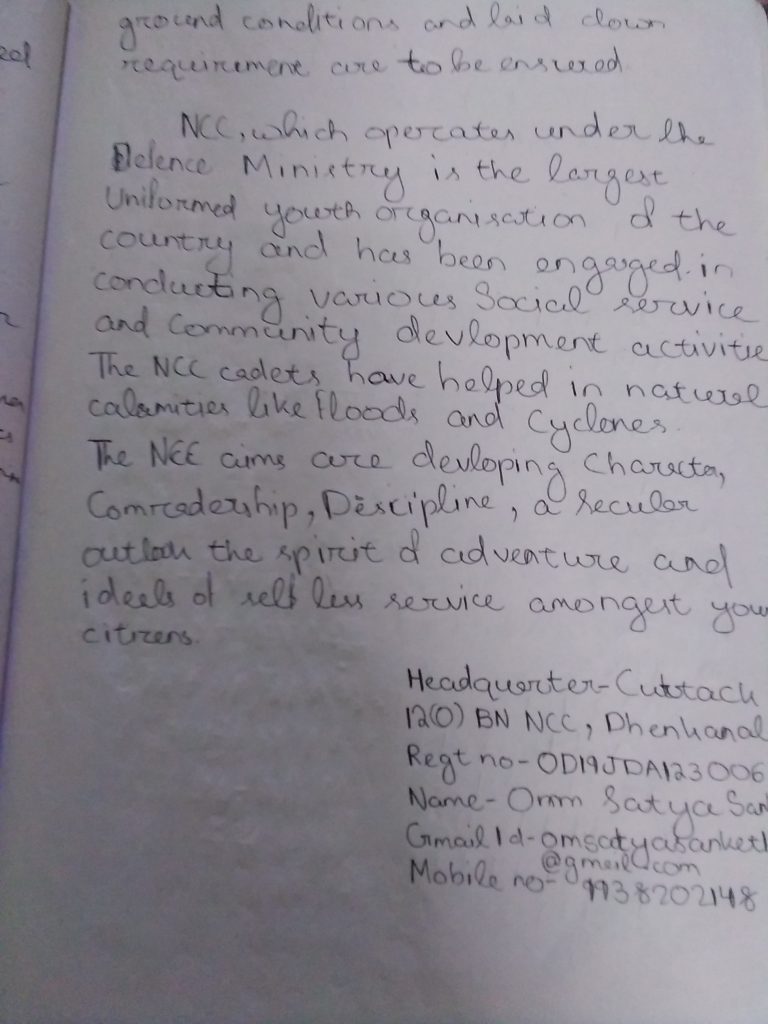 ground conditions and laid down
requirement are to be ensured
NCC, which operates under the
Defence Ministry is the largest
Uniformed youth organisation of the
country and has been engaged in
conducting various Social service
and Community devlopment activitie
The NCC cadets have helped in natural
calamities like floods and Cyclones.
The NCC aims are devloping Character,
Comradership, Discipline, a secular
outlook the spirit of adventure and
ideals of self less service amongest you
citizens.
Headquarter - Cuttack
12(O) BN NCC, Dhenkanal
Regt no - OD19JDA123006
Name - Omm Satya San
Gmail Id - omsatyasanket
@gmail.com
Mobile no - 9938202148